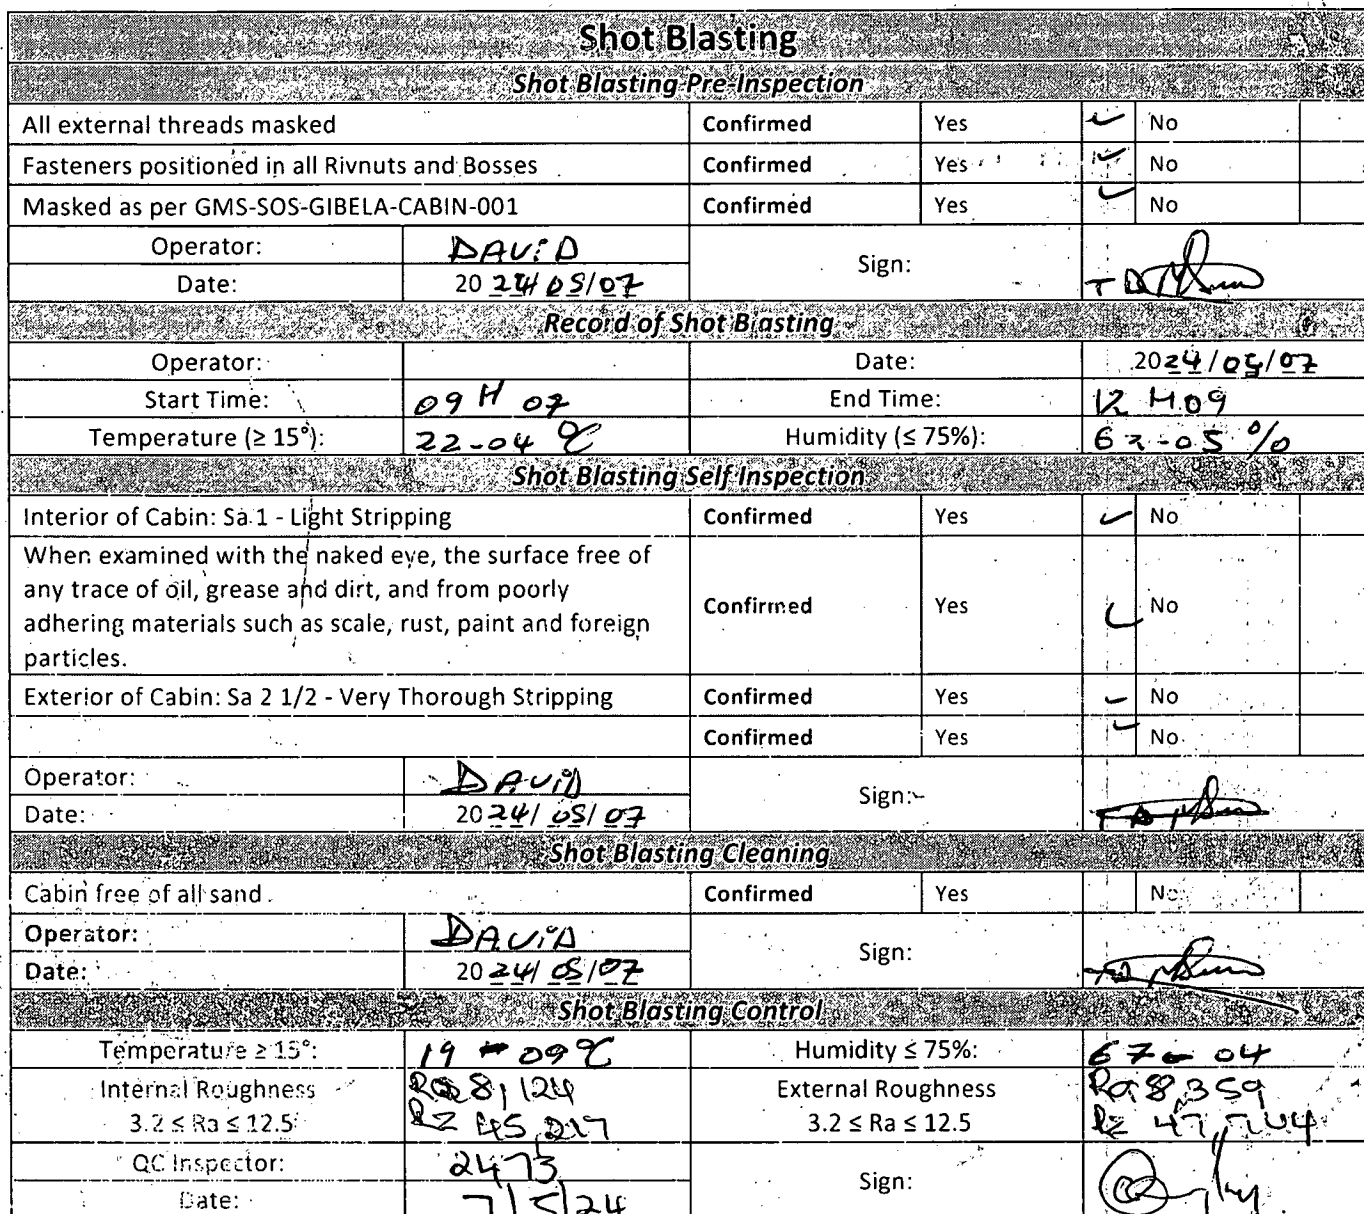 Shot Blasting
Shot Blasting Pre-Inspection
All external threads masked Confirmed Yes ✓ No
Fasteners positioned in all Rivnuts and Bosses Confirmed Yes ✓ No
Masked as per GMS-SOS-GIBELA-CABIN-001 Confirmed Yes ✓ No
Operator: DAViD Sign:
Date: 2024/05/07
Record of Shot Blasting
Operator: Date: 2024/05/07
Start Time: 09 H 07 End Time: 12 H 09
Temperature (≥ 15°): 22-04 °C Humidity (≤ 75%): 62-05 %
Shot Blasting Self Inspection
Interior of Cabin: Sa 1 - Light Stripping Confirmed Yes ✓ No
When examined with the naked eye, the surface free of
any trace of oil, grease and dirt, and from poorly
adhering materials such as scale, rust, paint and foreign
particles. Confirmed Yes ✓ No
Exterior of Cabin: Sa 2 1/2 - Very Thorough Stripping Confirmed Yes ✓ No
Confirmed Yes ✓ No
Operator: DAViD Sign:
Date: 2024/05/07
Shot Blasting Cleaning
Cabin free of all sand Confirmed Yes No
Operator: DAViD Sign:
Date: 2024/05/07
Shot Blasting Control
Temperature ≥ 15°: 19 - 09°C Humidity ≤ 75%: 67 - 04
Internal Roughness Ra 8,124 External Roughness Ra 8,359
3.2 ≤ Ra ≤ 12.5 Rz 45,217 3.2 ≤ Ra ≤ 12.5 Rz 47,744
QC Inspector: 2473 Sign:
Date: 7/5/24